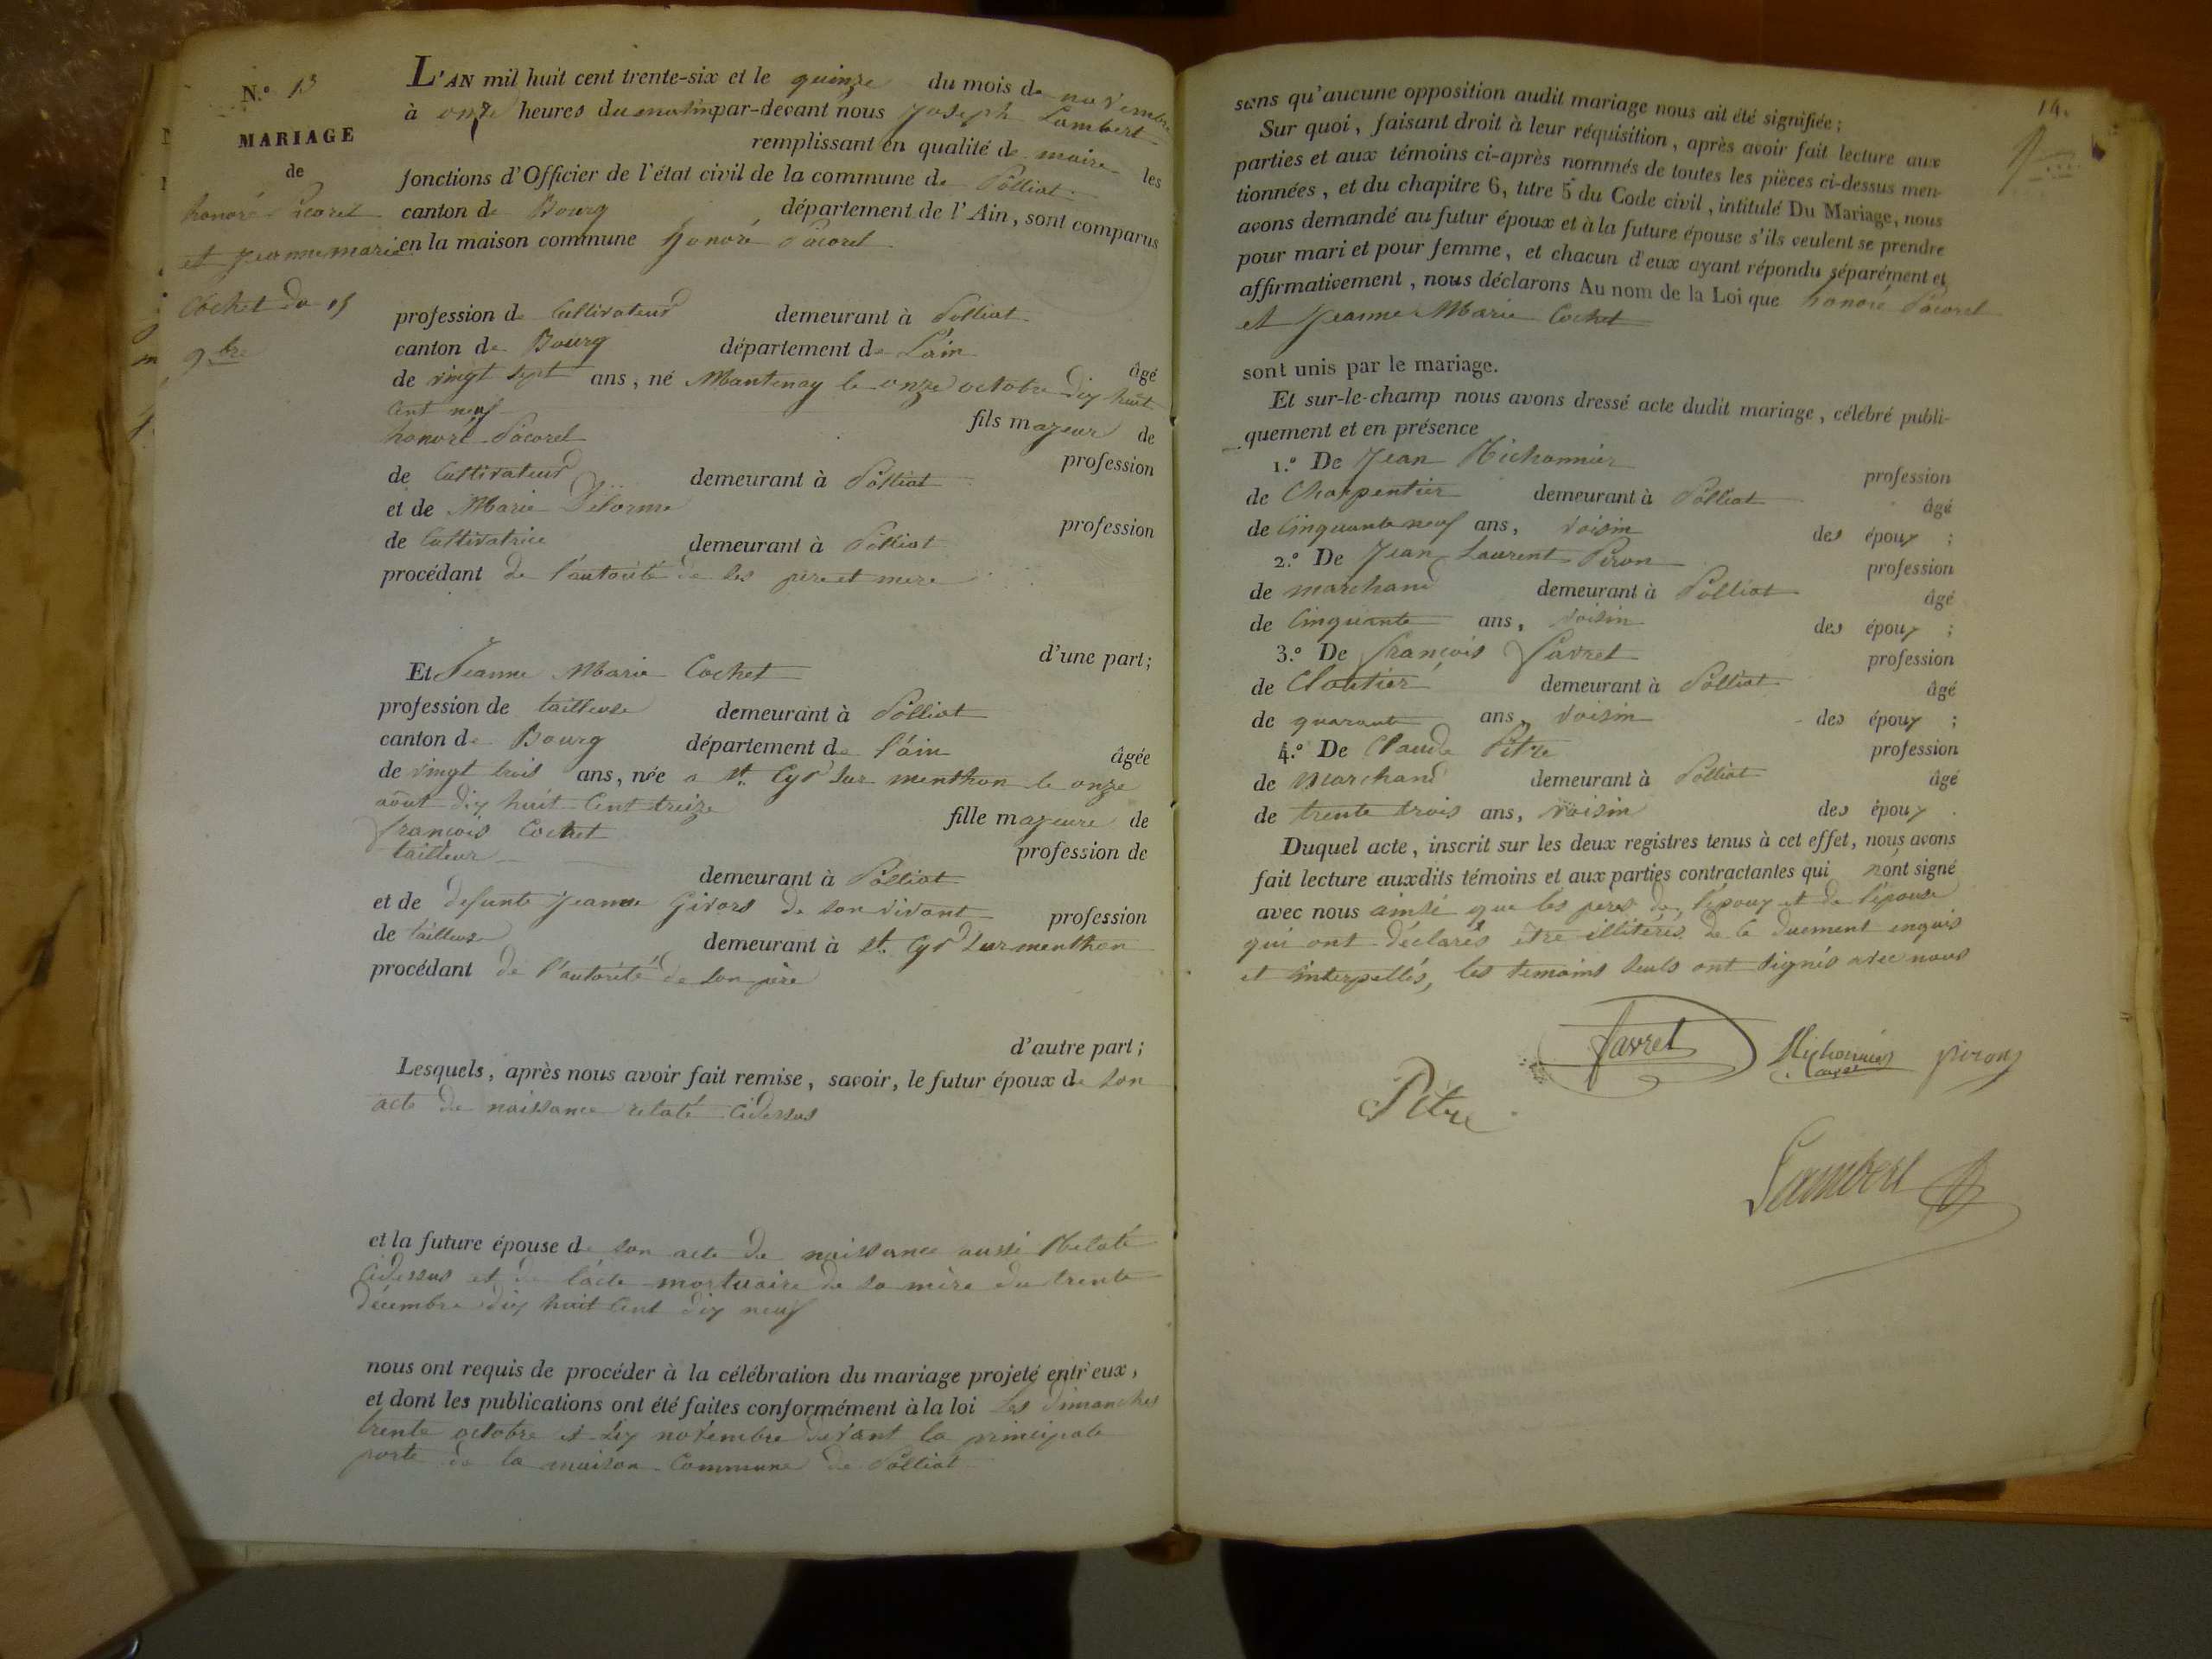 N.° 13
MARIAGE
de
honoré Pacoret
et jeanne marie
Cochet du 15
9bre
L'AN mil huit cent trente-six et le quinze du mois de novembre
à onze heures du matin par-devant nous joseph Lambert
remplissant en qualité de maire les
fonctions d'Officier de l'état civil de la commune de Polliat
canton de Bourg département de l'Ain, sont comparus
en la maison commune honoré Pacoret
profession de Cultivateur demeurant à Polliat
canton de Bourg département de L'ain
âgé
de vingt sept ans, né Mantenay le onze octobre dix huit
Cent neuf
fils majeur de
honoré Pacoret
profession
de Cultivateur demeurant à Polliat
et de Marie Delorme
profession
de Cultivatrice demeurant à Polliat
procédant de l'autorité de ses pere et mere
d'une part;
Et Jeanne Marie Cochet
profession de tailleuse demeurant à Polliat
canton de Bourg département de l'ain
âgée
de vingt trois ans, née a st. Cyr sur menthon le onze
aout dix huit Cent treize
fille majeure de
françois Cochet
profession de
tailleur
demeurant à Polliat
et de defunte jeanne Givors de son vivant profession
de tailleuse demeurant à st. Cyr sur menthon
procédant de l'autorité de son père
d'autre part;
Lesquels, après nous avoir fait remise, savoir, le futur époux de son
acte de naissance relaté cidessus
et la future épouse de son acte de naissance aussi relaté
Cidessus et de l'acte mortuaire de sa mère du trente
décembre dix huit Cent dix neuf
nous ont requis de procéder à la célébration du mariage projeté entr'eux,
et dont les publications ont été faites conformément à la loi les dimanches
trente octobre et six novembre devant la principale
porte de la maison Commune de Polliat
14.
sans qu'aucune opposition audit mariage nous ait été signifiée;
Sur quoi, faisant droit à leur réquisition, après avoir fait lecture aux
parties et aux témoins ci-après nommés de toutes les pièces ci-dessus men-
tionnées, et du chapitre 6, titre 5 du Code civil, intitulé Du Mariage, nous
avons demandé au futur époux et à la future épouse s'ils veulent se prendre
pour mari et pour femme, et chacun d'eux ayant répondu séparément et
affirmativement, nous déclarons Au nom de la Loi que honoré Pacoret
et Jeanne Marie Cochet
sont unis par le mariage.
Et sur-le-champ nous avons dressé acte dudit mariage, célébré publi-
quement et en présence
1.° De Jean Michonnier
profession
de Charpentier demeurant à Polliat
âgé
de Cinquante neuf ans, voisin des époux ;
2.° De Jean Laurent Piron
profession
de marchand demeurant à Polliat
âgé
de Cinquante ans, voisin des époux ;
3.° De françois favret
profession
de Cloutier demeurant à Polliat
âgé
de quarante ans, voisin des époux ;
4.° De Claude Pitre
profession
de Marchand demeurant à Polliat
âgé
de trente trois ans, voisin des époux .
Duquel acte, inscrit sur les deux registres tenus à cet effet, nous avons
fait lecture auxdits témoins et aux parties contractantes qui n'ont signé
avec nous ainsi que les peres de l'époux et de l'épouse
qui ont déclarés être illitérés de ce duement enquis
et interpellés, les temoins seuls ont signés avec nous
favret
Michonnier
piron
Pitre
Lambert